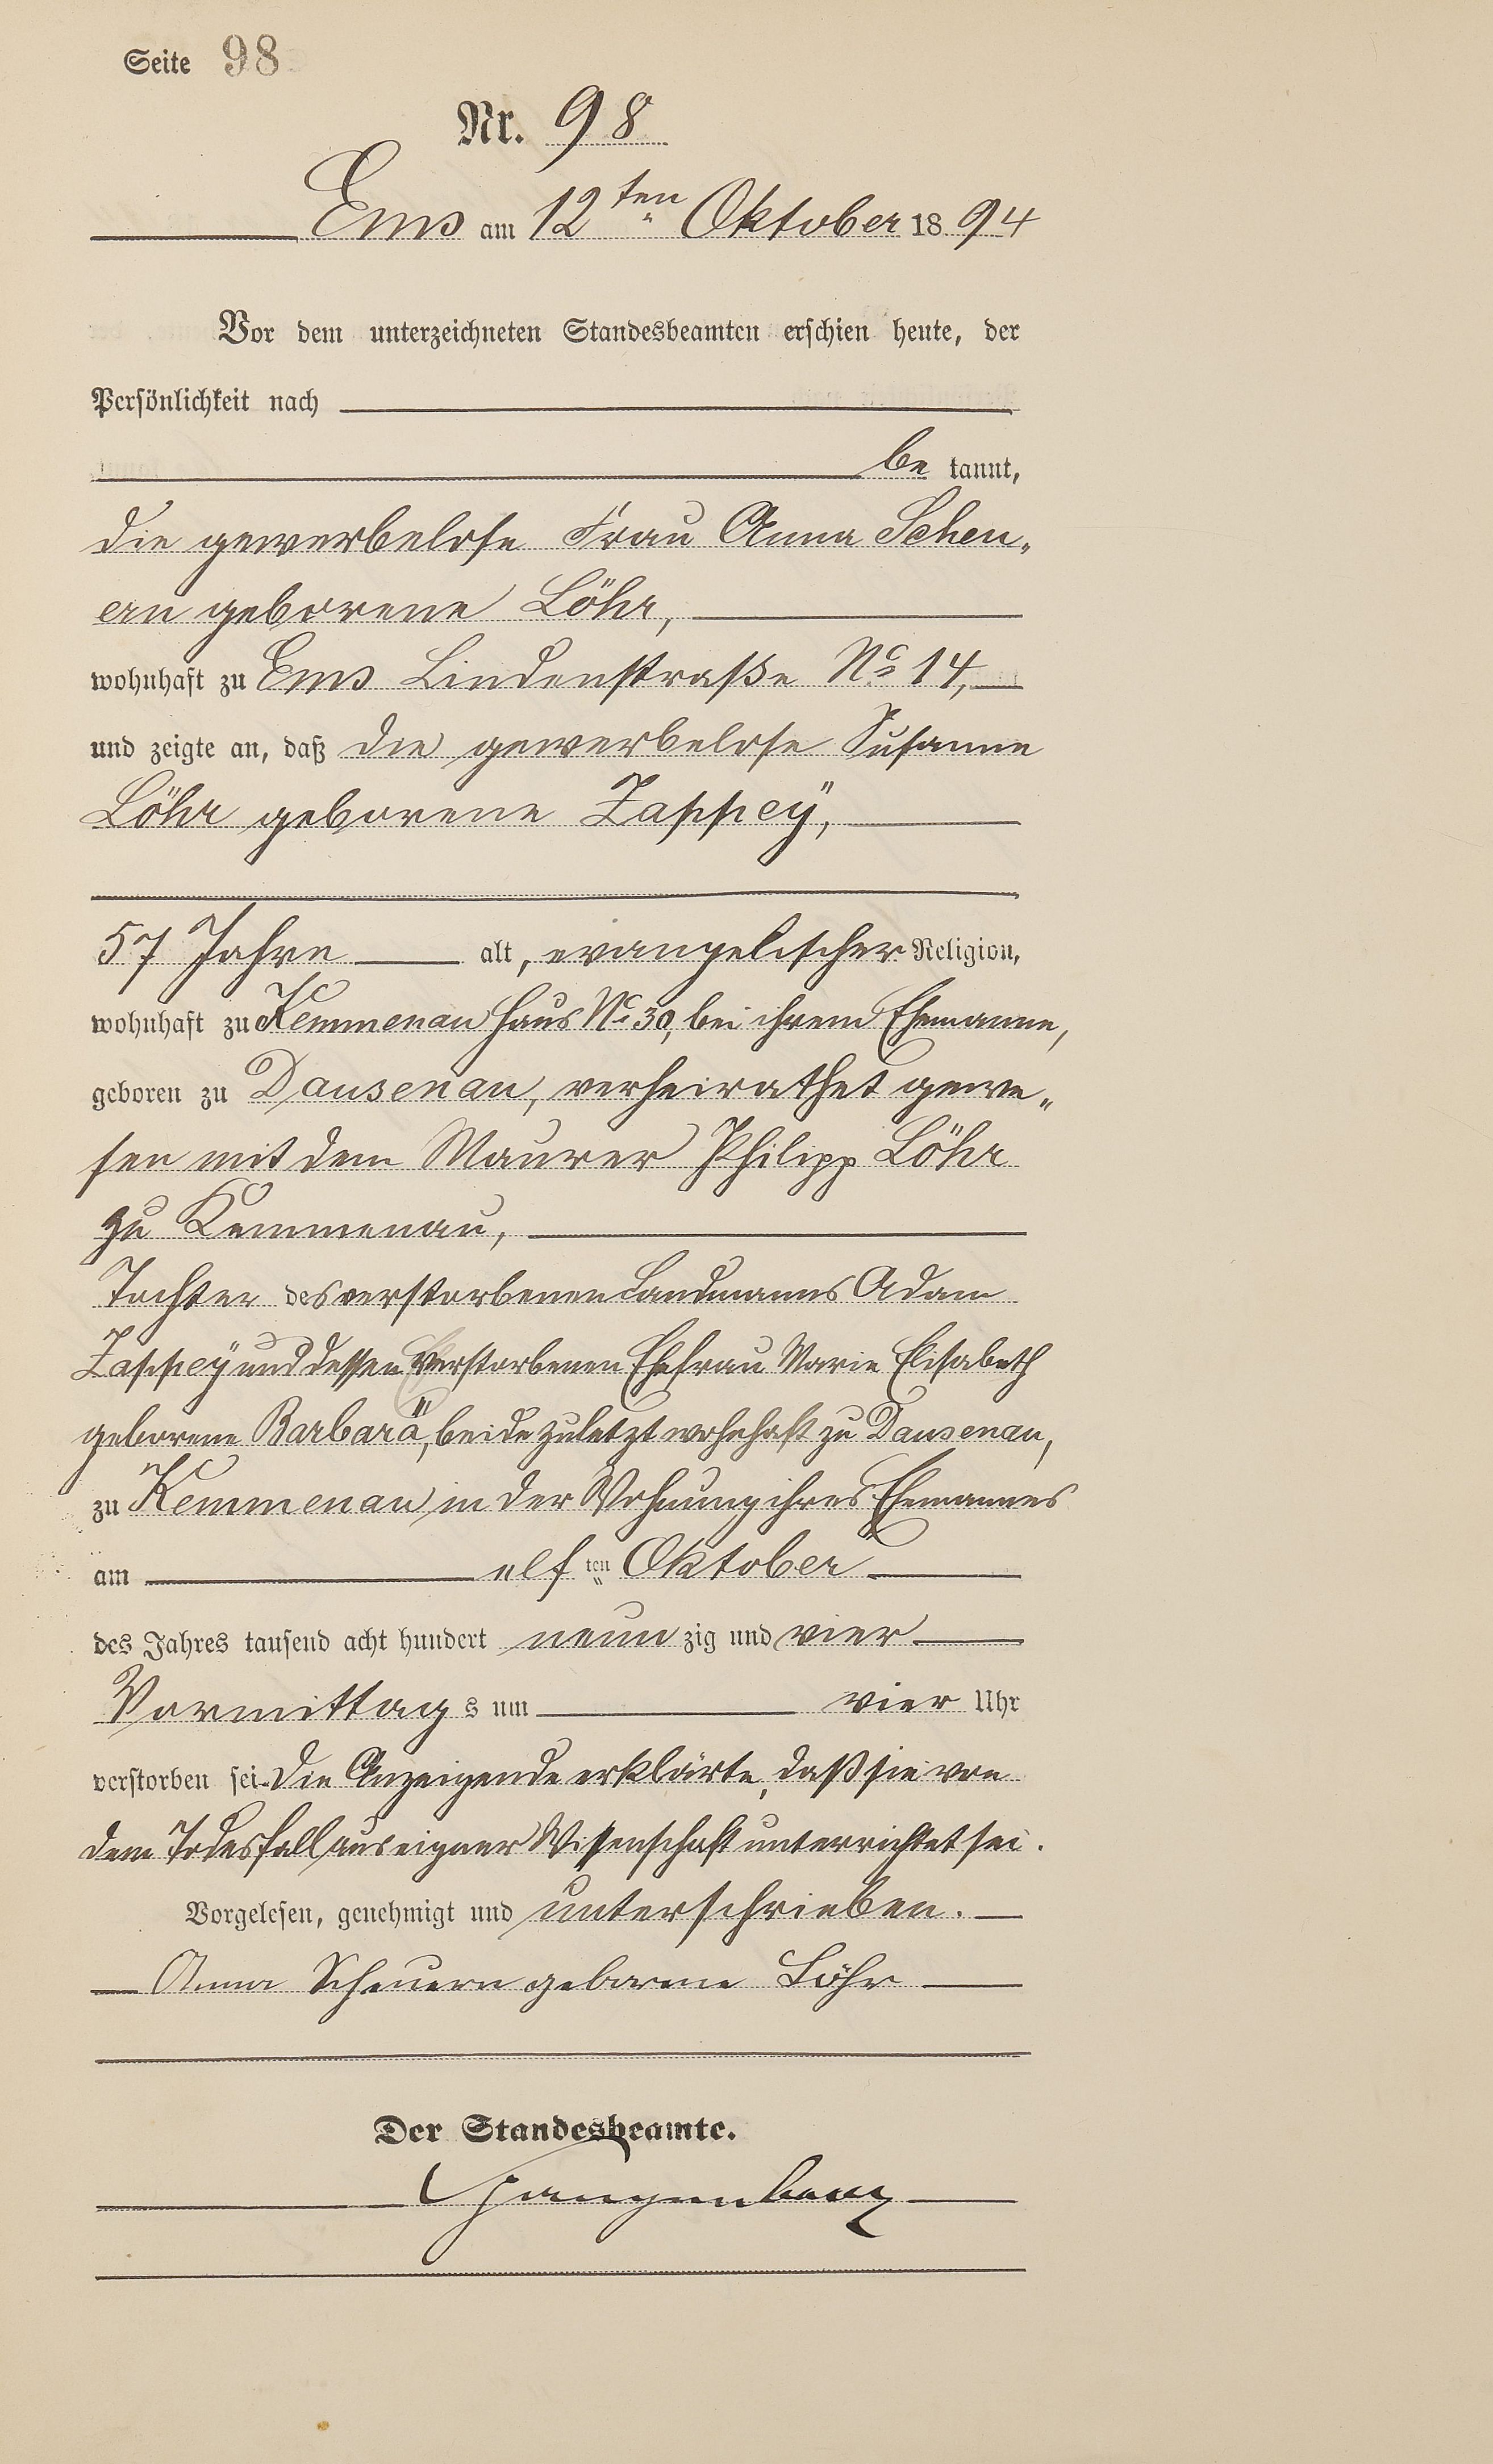 Seite 98
Nr. 98
Ems am 12ten Oktober 1894
Vor dem unterzeichneten Standesbeamten erschien heute, der
Persönlichkeit nach
be kannt,
die gewerbelose Frau Anna Scheu„
ern geborene Löhr,
wohnhaft zu Ems Lindenstraße No 14,
und zeigte an, daß die gewerbelose Susanne
Löhr geborene Zappeÿ,
57 Jahre alt, evangelischer Religion,
wohnhaft zu Kemmenau Haus No 30, bei ihrem Ehemanne,
geboren zu Dausenau, verheirathet gewe„
sen mit dem Maurer Philipp Löhr
zu Kemmenau,
Tochter des verstorbenen Landmanns Adam
Zappeÿ und dessen verstorbenen Ehefrau Marie Elisabeth
geborene Barbara, beide zuletzt wohnhaft zu Dausenau,
zu Kemmenau in der Wohnung ihres Ehemannes
am elf ten Oktober
des Jahres tausend acht hundert neun zig und vier
Vormittag s um vier Uhr
verstorben sei. Die Anzeigende erklärte, daß sie von
dem Todesfall aus eigner Wissenschaft unterrichtet sei.
Vorgelesen, genehmigt und unterschrieben.
Anna Scheuern geborene Löhr
Der Standesbeamte.